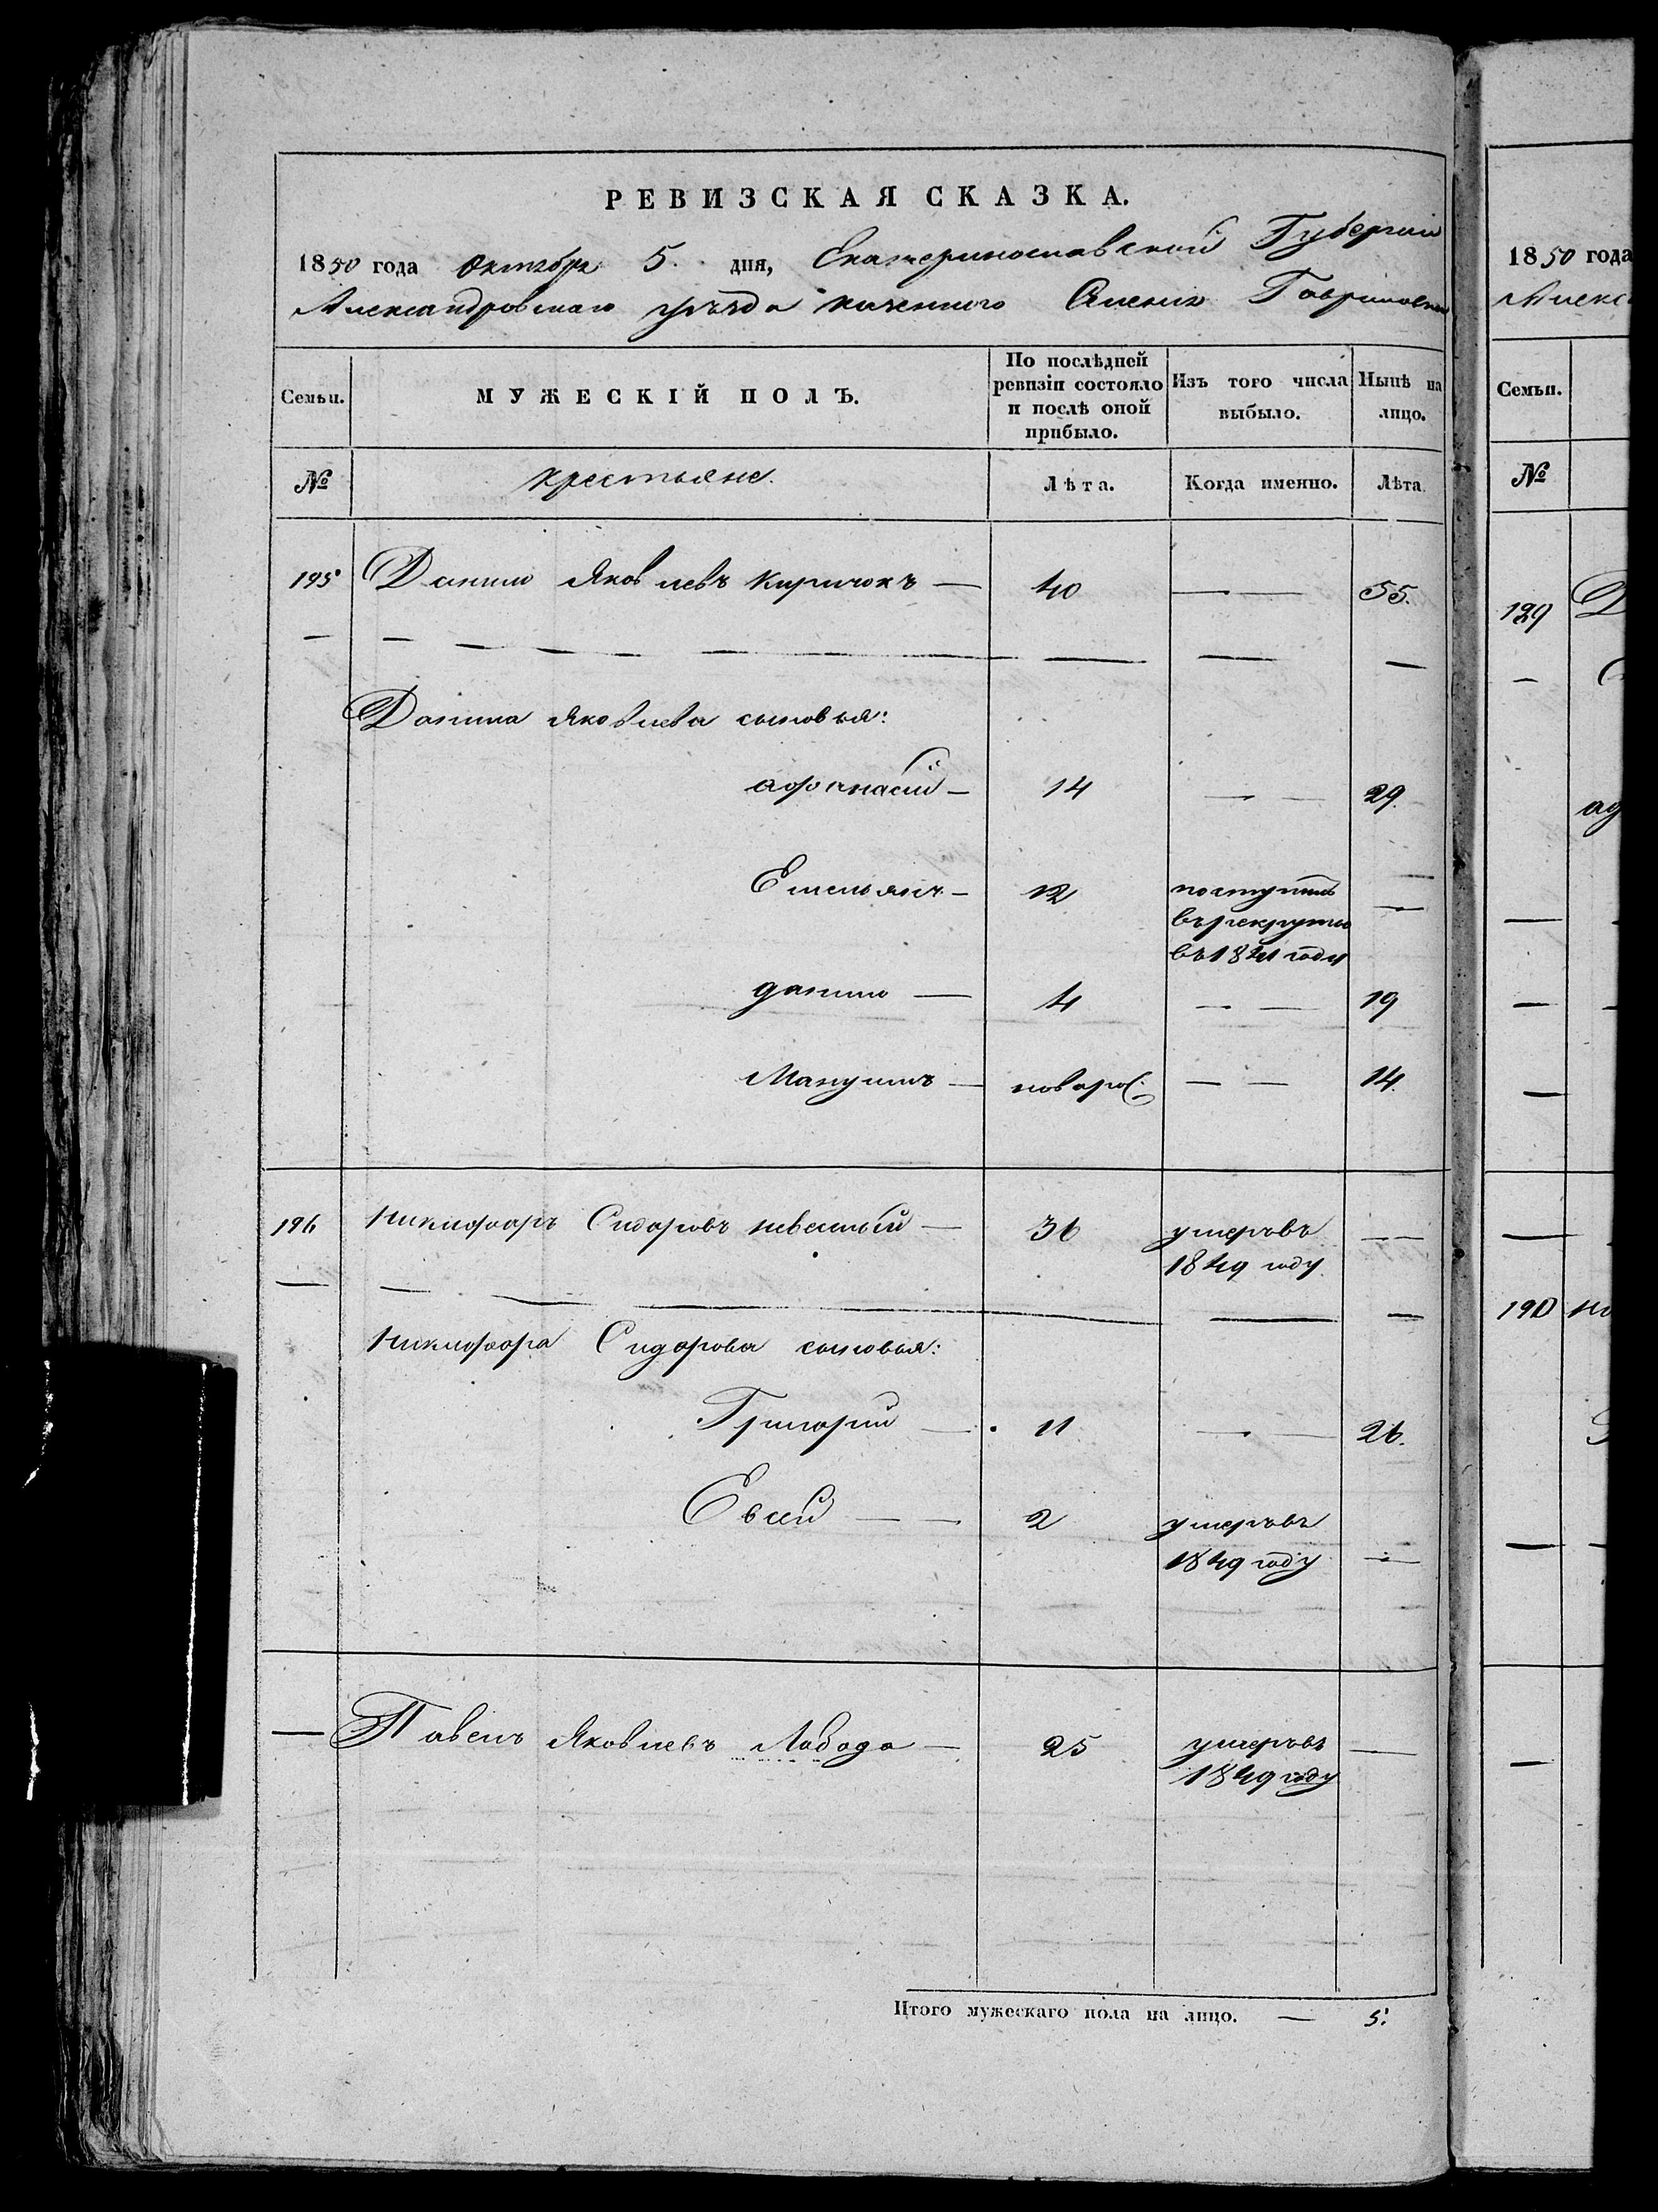 РЕВИЗСКАЯ СКАЗКА.
1850 года Октября 5 дня, Екатеринославской Губернии
Александровскаго уезда казенного Селения Гавриловки
Семьи.
МУЖЕСКІЙ ПОЛЪ.
По послѣдней
ревизіи состояло
и послѣ оной
прибыло.
Изъ того числа
выбыло.
Нынѣ на
лицо.
№
крестьяне.
Лѣта.
Когда именно.
Лѣта
195 Данило Яковлевъ Киричокъ — 40 — — 55.
Данила Яковлева сыновья:
афанасий — 14 — — 29.
Емельянъ — 12 поступилъ —
въ рекруты
въ 1841 году
данило — 4 — — 19
Мануилъ — новорож. — — 14.
196 Никифоръ Сидоровъ — 36 умеръ въ — —
1849 году
Никифора Сидорова сыновья:
Григорий — 11 — — 26.
Евсей — — 2 умеръ въ
1849 году —
— Павелъ Яковлевъ Лобода — 25 умеръ въ —
1849 году
Итого мужескаго пола на лицо. — 5.
1850 года
Алекса
Семьи.
№
190